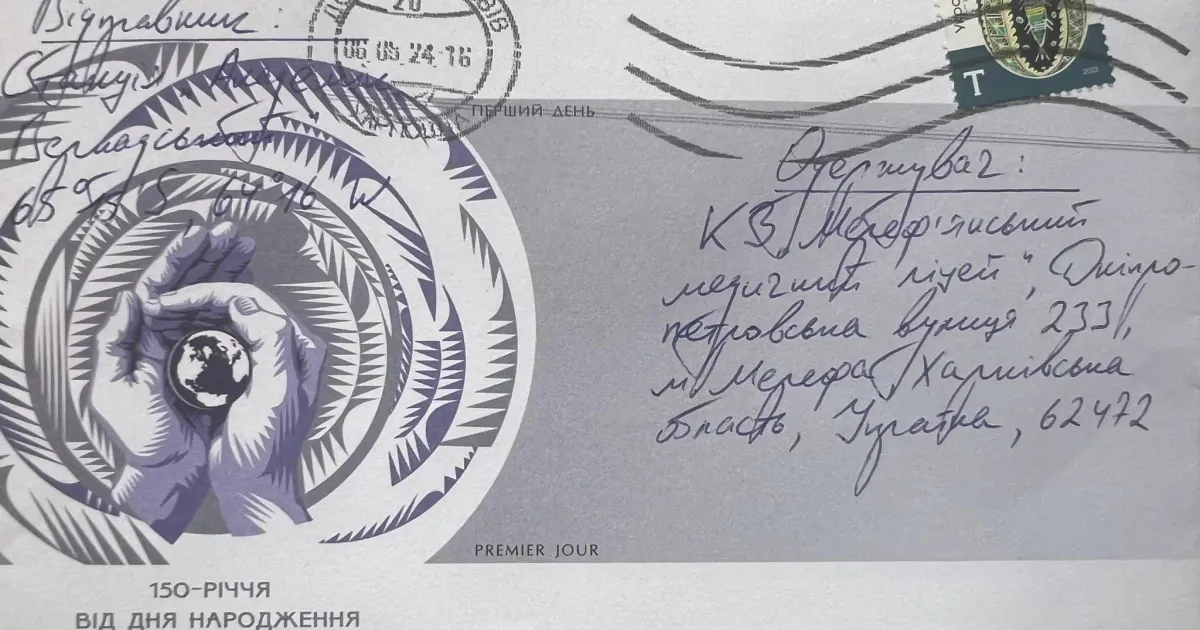 Відправник:
Станція "Академік
Вернадський"
65°15' S, 64°16 W
20
ЛЬВІВ
06.05.24-16
ПЕРШИЙ ДЕНЬ
T
2023
Одержувач:
КЗ "Мереф'янський
медичний ліцей", Дніпро-
петровська вулиця 233,
м Мерефа Харківська
область, Україна, 62472
PREMIER JOUR
150-РІЧЧЯ
ВІД ДНЯ НАРОДЖЕННЯ